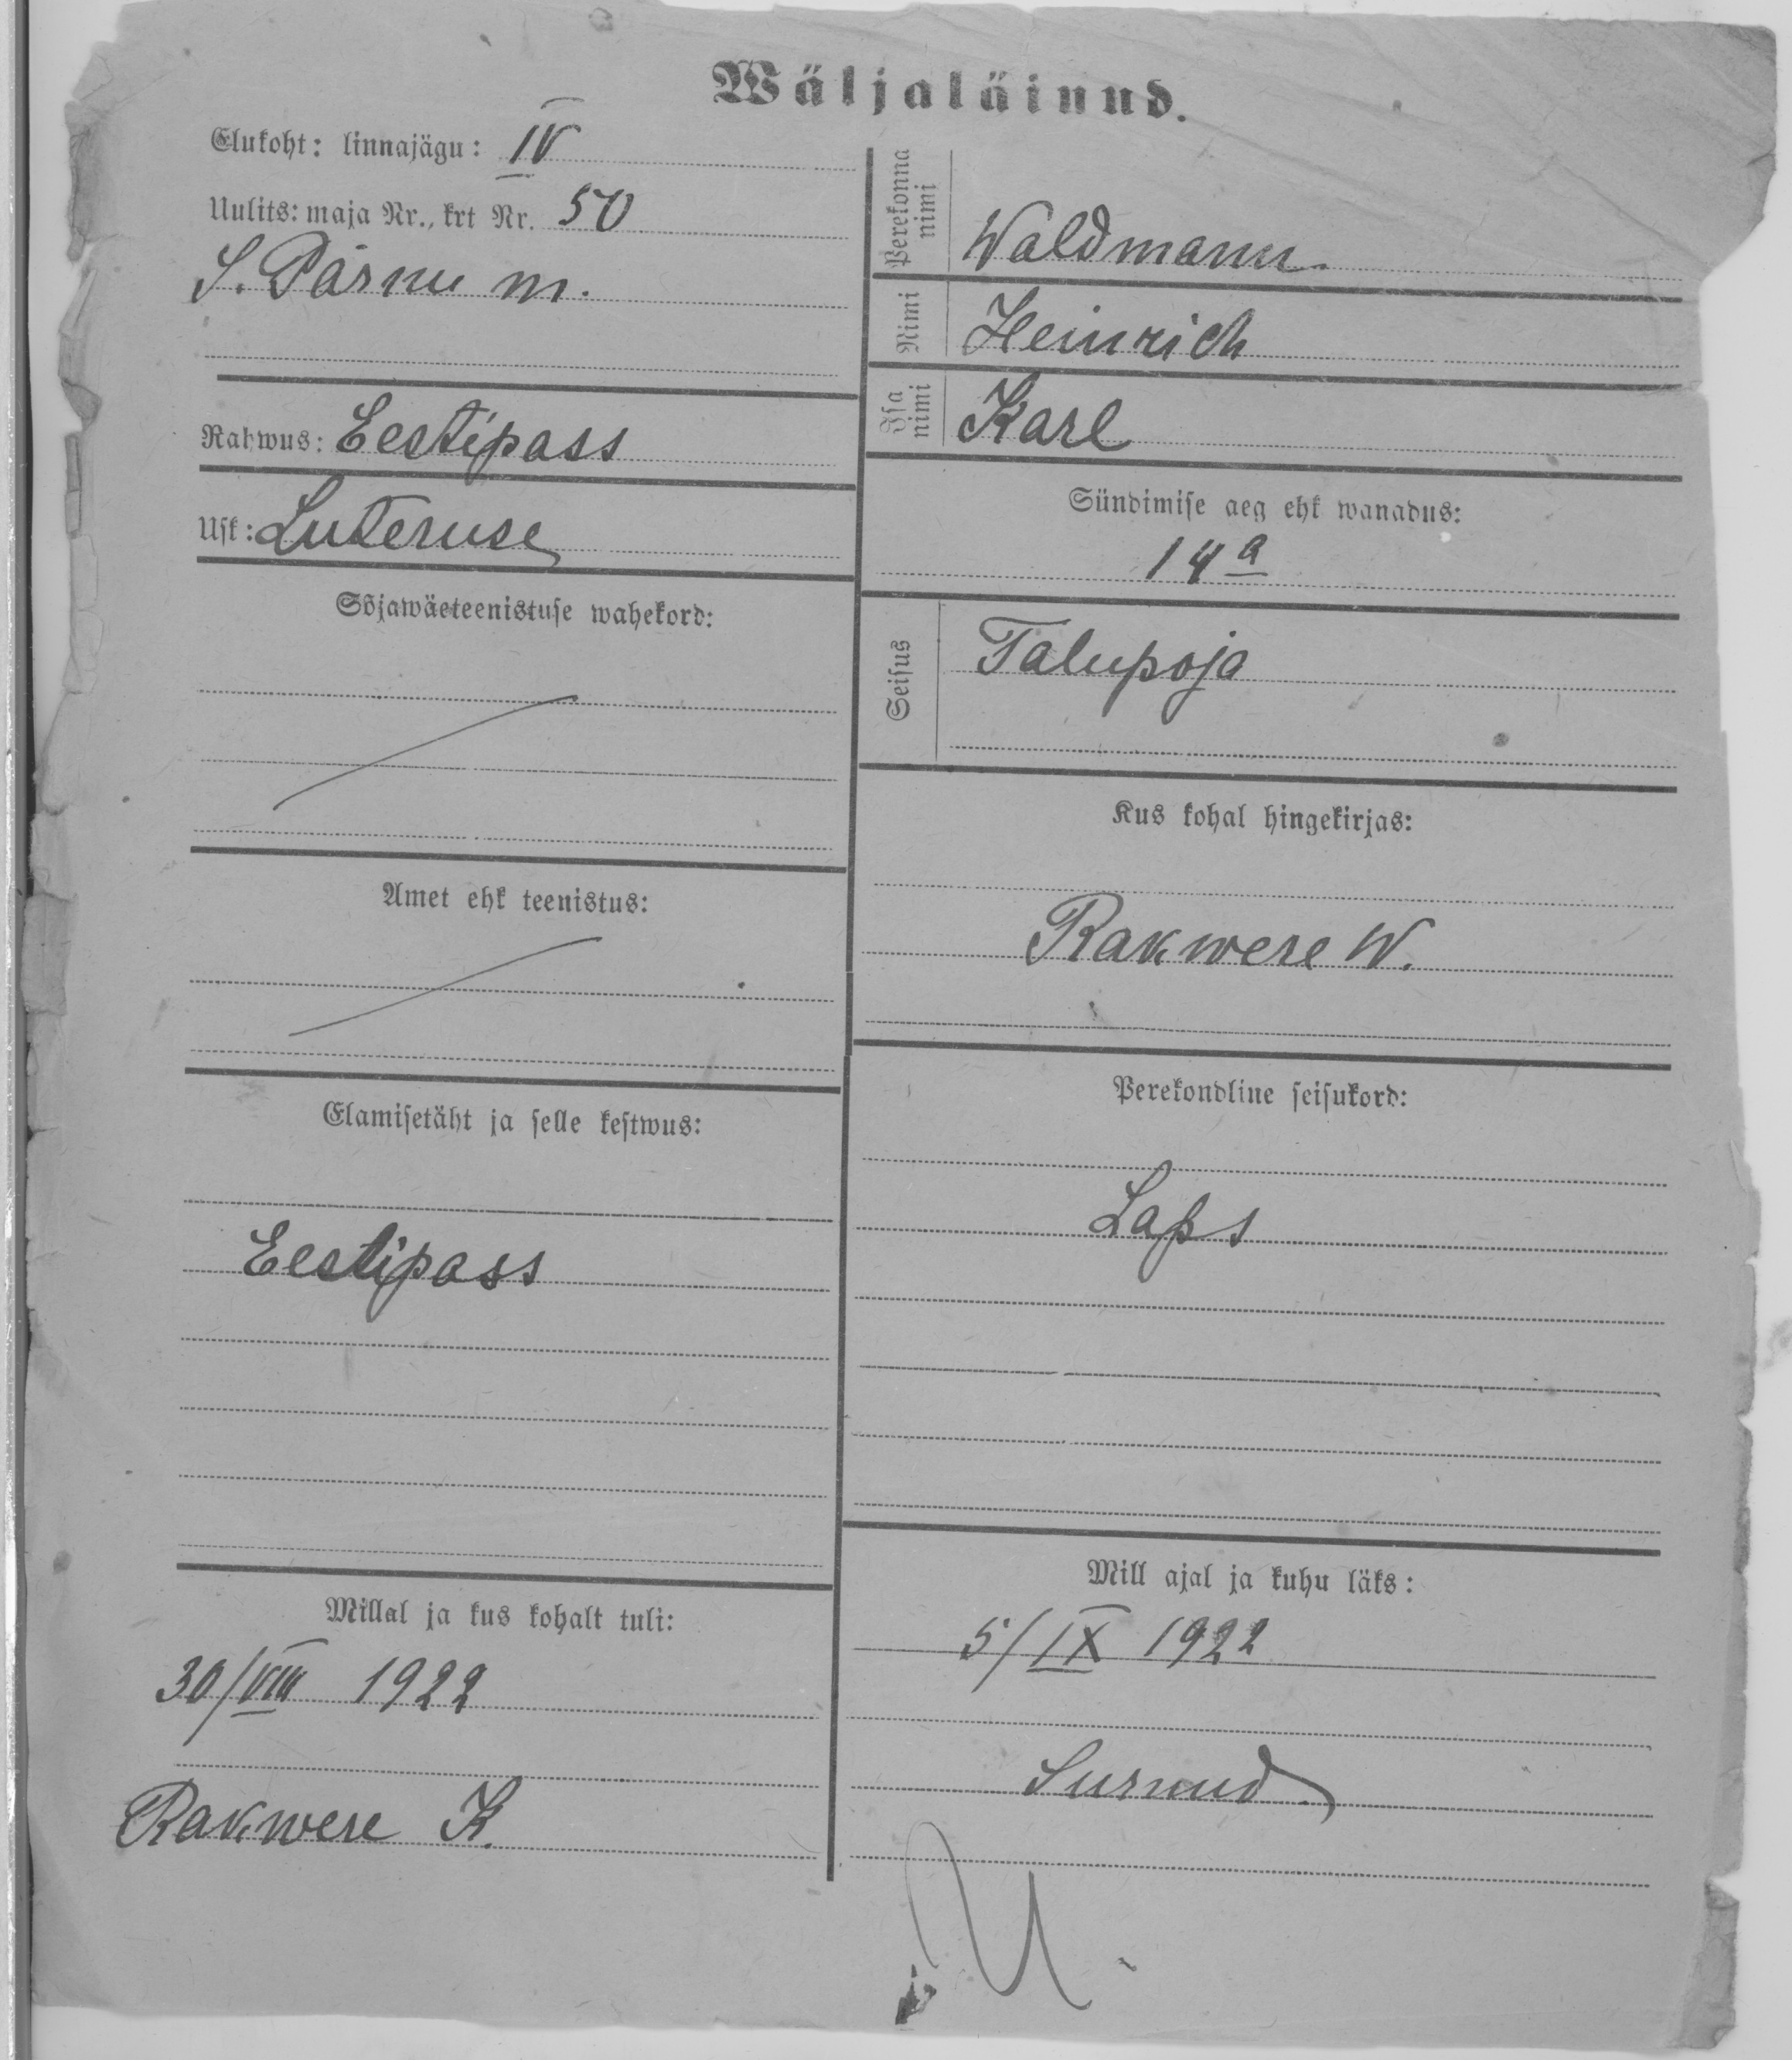 Wäljaläinud.
Elukoht: linnajägu: IV
Uulits: maja Nr., krt Nr. 50
S. Pärnu m.
Rahwus: Eestipass
Usk: Luteruse
Sõjawäeteenistuse wahekord:
Amet ehk teenistus:
Elamisetäht ja selle kestwus:
Eestipass
Millal ja kus kohalt tuli:
30/VIII 1922
Rakwere K.
Perekonna nimi Waldmann.
Nimi Heinrich
Isa nimi Karl
Sündimise aeg ehk wanadus:
14 a
Seisus Talupoja
Kus kohal hingekirjas:
Rakwere W.
Perekondline seisukord:
Laps
Mill ajal ja kuhu läks:
5/IX 1922
Surnud